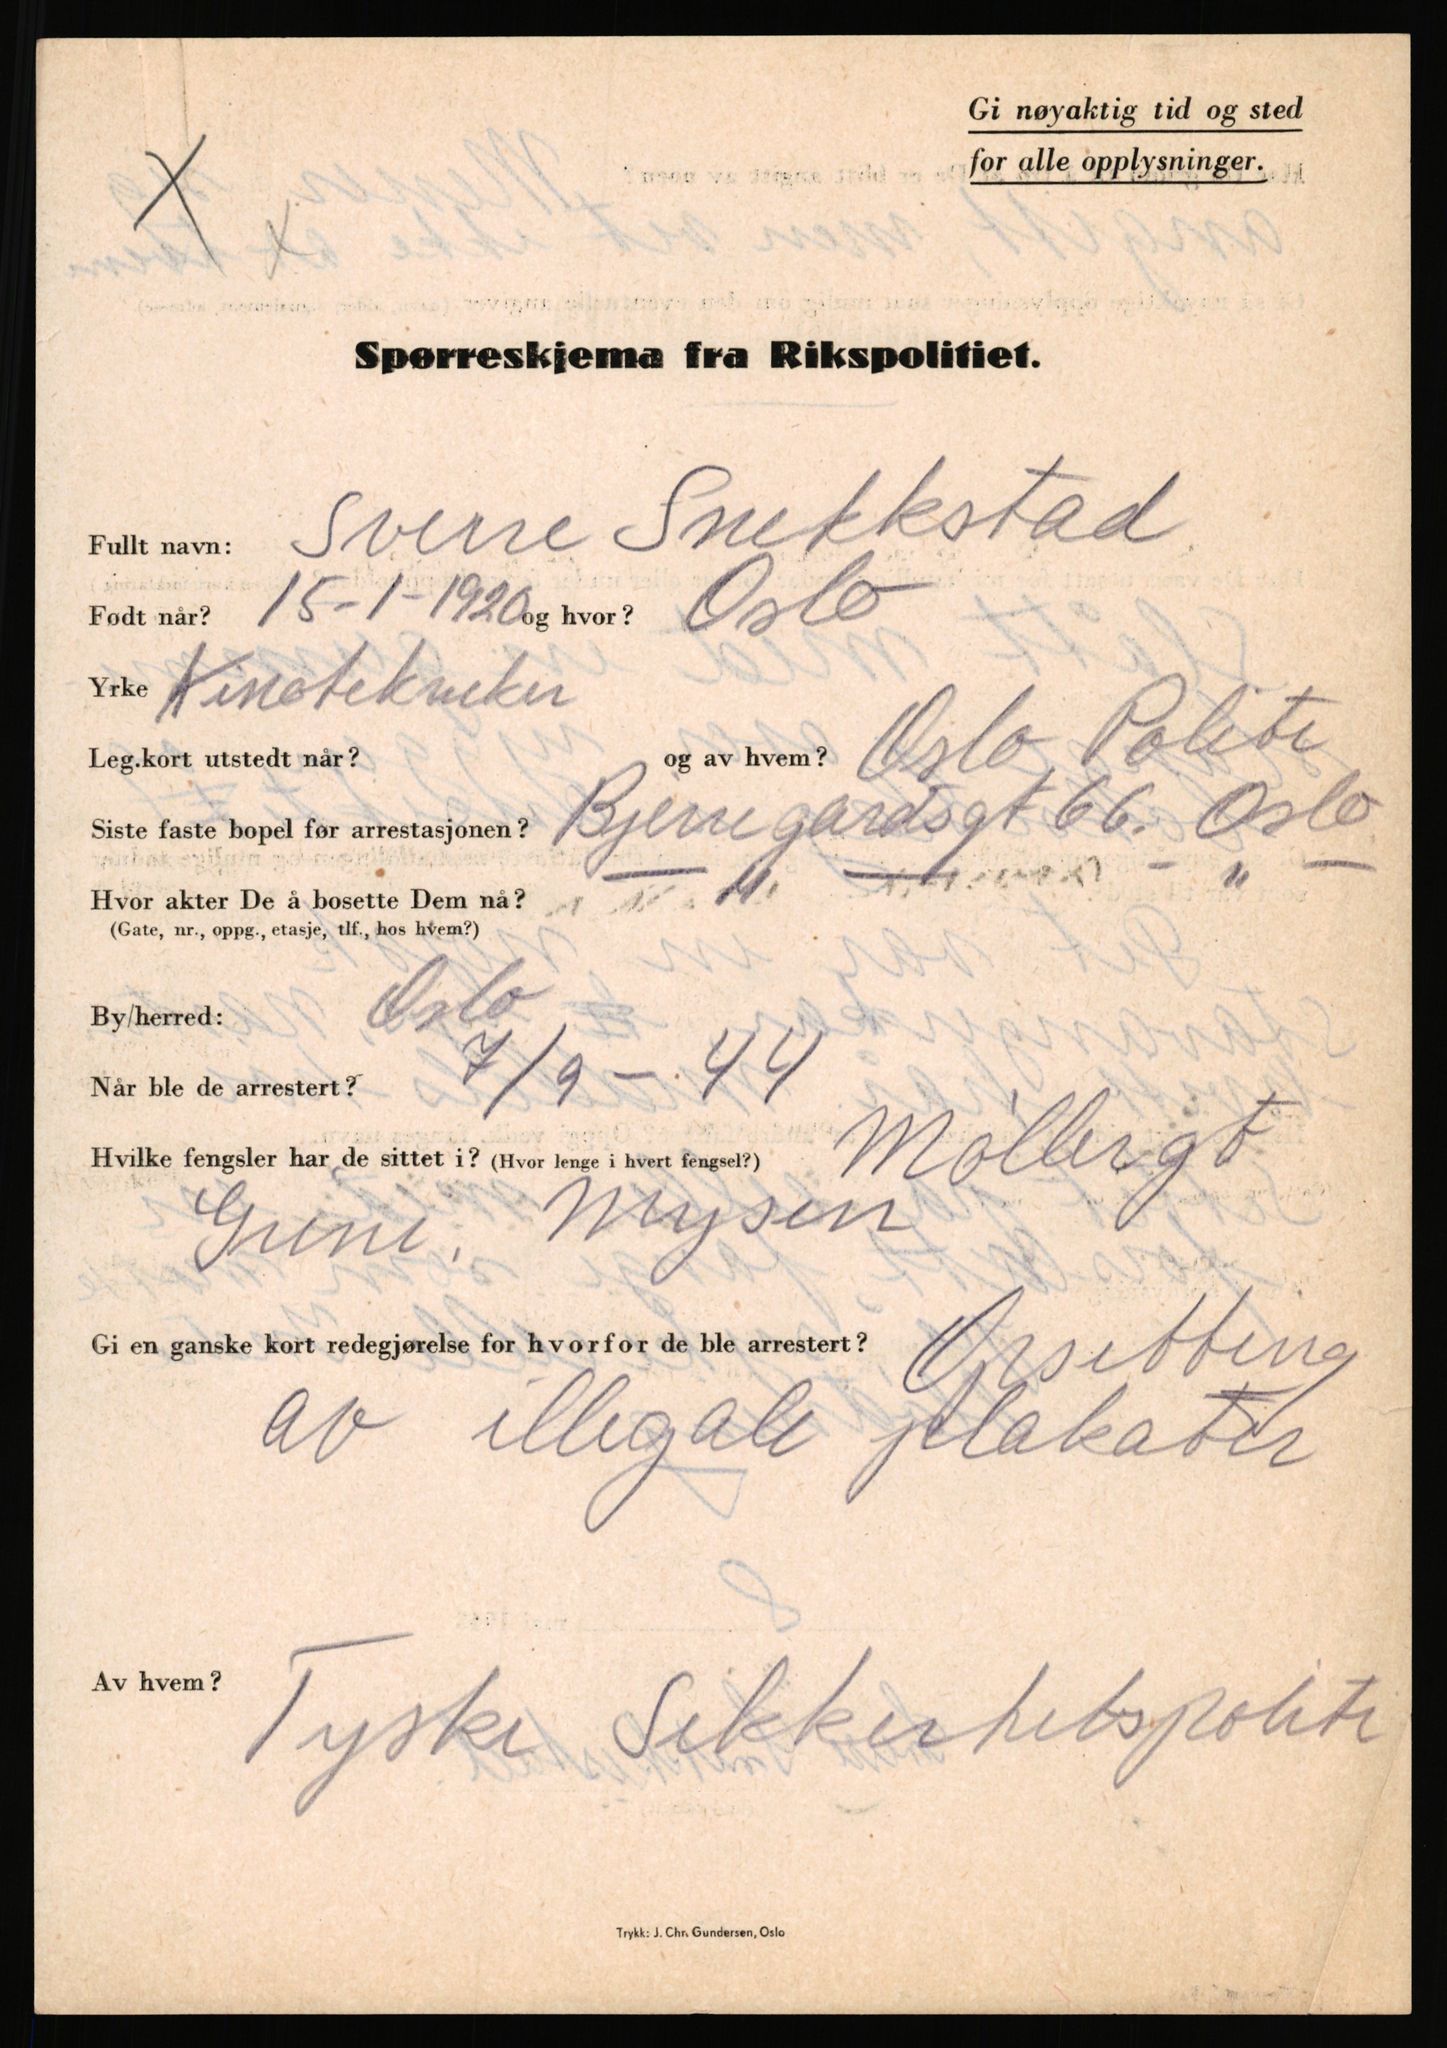 Gi nøyaktig tid og sted
for alle opplysninger.
Spørreskjema fra Rikspolitiet.
Fullt navn: Sverre Snekkstad
Født når? 15-1-1920 og hvor? Oslo
Yrke Kinotekniker
Leg.kort utstedt når? og av hvem? Oslo Politi
Siste faste bopel før arrestasjonen? Bjerregardsgt 66. Oslo
Hvor akter De å bosette Dem nå? — " — - " —
(Gate, nr., oppg., etasje, tlf., hos hvem?)
By/herred: Oslo
Når ble de arrestert? 7/9 - 44
Hvilke fengsler har de sittet i? (Hvor lenge i hvert fengsel?) Møllergt
Grini, Mysen
Gi en ganske kort redegjørelse for hvorfor de ble arrestert? Opsetting
av illegale plakater
Av hvem? Tyske Sikkerhetspoliti
Trykk: J. Chr. Gundersen, Oslo